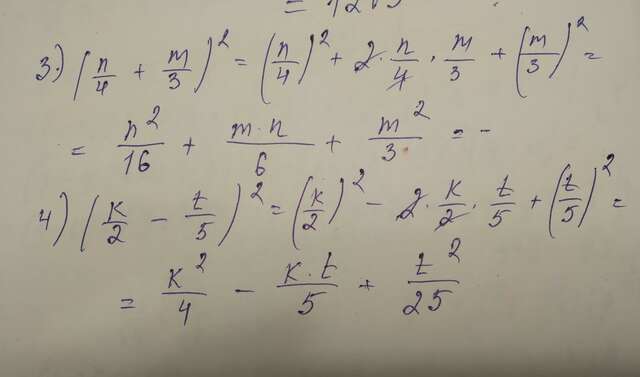 = 12
3.) (n/4 + m/3)² = (n/4)² + 2 · n/4 · m/3 + (m/3)² =
= n²/16 + m·n/6 + m²/3 = -
4) (k/2 - t/5)² = (k/2)² - 2 · k/2 · t/5 + (t/5)² =
= k²/4 - k·t/5 + t²/25